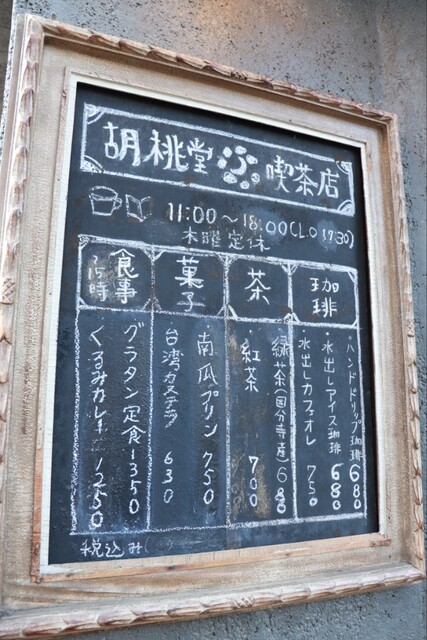 胡桃堂 喫茶店
11:00〜18:00(L.O 17:30)
木曜定休
珈琲
・ハンドドリップ珈琲 680
・水出しアイス珈琲 680
・水出しカフェオレ 750
茶
緑茶(国分寺産) 680
・紅茶 700
菓子
・南瓜プリン 750
台湾カステラ 630
食事
15時
グラタン定食 1350
くるみカレー 1250
税込み